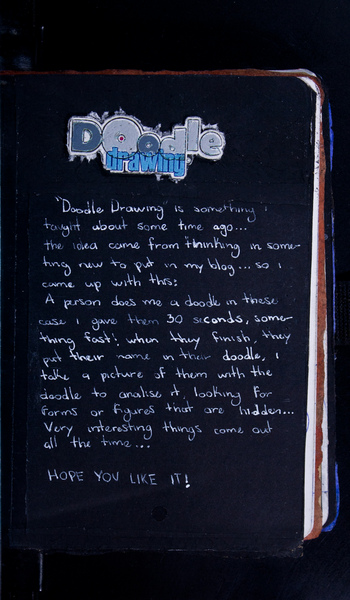 Doodle
drawing
"Doodle Drawing is something i
taught about some time ago...
the idea came from thinking in some-
ting new to put in my blog... so i
came up with this:
A person does me a doodle in these
case i gave them 30 seconds, some-
thing fast! when they finish, they
put their name in their doodle, i
take a picture of them with the
doodle to analise it, looking for
forms or figures that are hidden...
Very interesting things come out
all the time...
HOPE YOU LIKE IT!